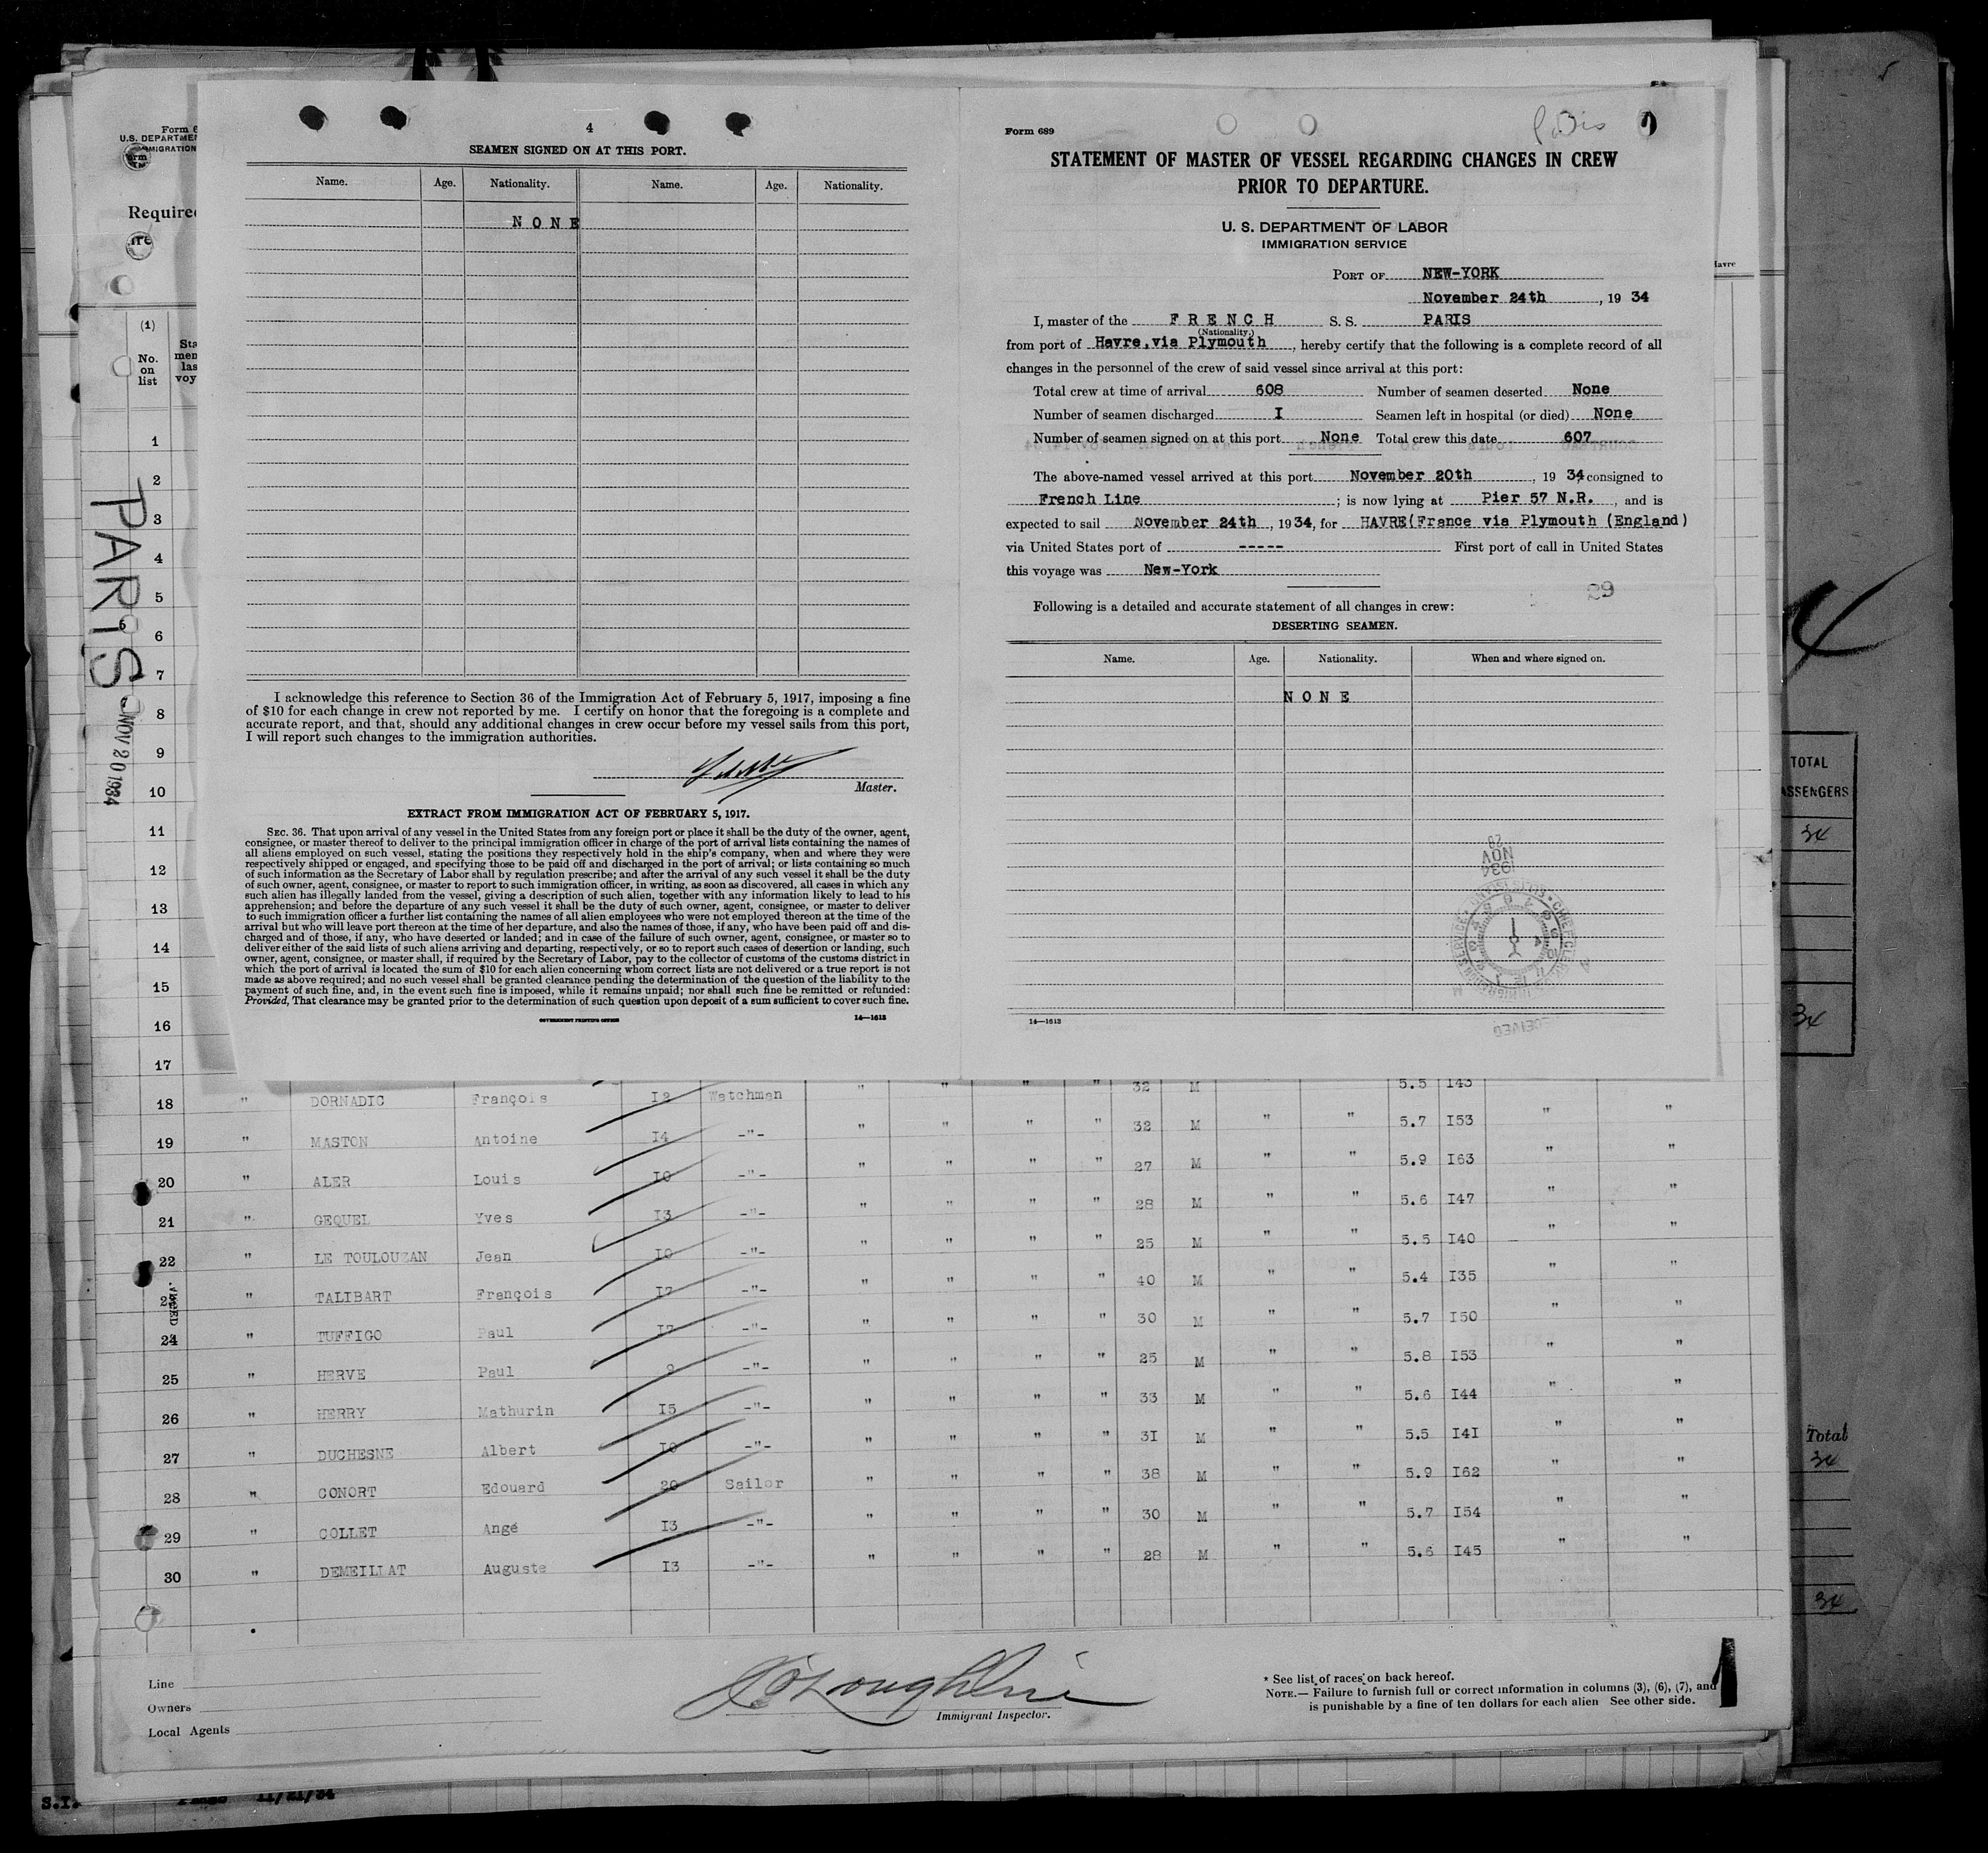 4
SEAMEN SIGNED ON AT THIS PORT.
Name. Age. Nationality. Name. Age. Nationality.
NONE
I acknowledge this reference to Section 36 of the Immigration Act of February 5, 1917, imposing a fine
of $10 for each change in crew not reported by me. I certify on honor that the foregoing is a complete and
accurate report, and that, should any additional changes in crew occur before my vessel sails from this port,
I will report such changes to the immigration authorities.
Master.
EXTRACT FROM IMMIGRATION ACT OF FEBRUARY 5, 1917.
SEC. 36. That upon arrival of any vessel in the United States from any foreign port or place it shall be the duty of the owner, agent,
consignee, or master thereof to deliver to the principal immigration officer in charge of the port of arrival lists containing the names of
all aliens employed on such vessel, stating the positions they respectively hold in the ship's company, when and where they were
respectively shipped or engaged, and specifying those to be paid off and discharged in the port of arrival; or lists containing so much
of such information as the Secretary of Labor shall by regulation prescribe; and after the arrival of any such vessel it shall be the duty
of such owner, agent, consignee, or master to report to such immigration officer, in writing, as soon as discovered, all cases in which any
such alien has illegally landed from the vessel, giving a description of such alien, together with any information likely to lead to his
apprehension; and before the departure of any such vessel it shall be the duty of such owner, agent, consignee, or master to deliver
to such immigration officer a further list containing the names of all alien employees who were not employed thereon at the time of the
arrival but who will leave port thereon at the time of her departure, and also the names of those, if any, who have been paid off and dis-
charged and of those, if any, who have deserted or landed; and in case of the failure of such owner, agent, consignee, or master so to
deliver either of the said lists of such aliens arriving and departing, respectively, or so to report such cases of desertion or landing, such
owner, agent, consignee, or master shall, if required by the Secretary of Labor, pay to the collector of customs of the customs district in
which the port of arrival is located the sum of $10 for each alien concerning whom correct lists are not delivered or a true report is not
made as above required; and no such vessel shall be granted clearance pending the determination of the question of the liability to the
payment of such fine, and, in the event such fine is imposed, while it remains unpaid; nor shall such fine be remitted or refunded:
Provided, That clearance may be granted prior to the determination of such question upon deposit of a sum sufficient to cover such fine.
GOVERNMENT PRINTING OFFICE 14—1613
Form 689
STATEMENT OF MASTER OF VESSEL REGARDING CHANGES IN CREW
PRIOR TO DEPARTURE.
U. S. DEPARTMENT OF LABOR
IMMIGRATION SERVICE
PORT OF NEW-YORK
November 24th, 19 34
I, master of the FRENCH S. S. PARIS
(Nationality.)
from port of Havre, via Plymouth, hereby certify that the following is a complete record of all
changes in the personnel of the crew of said vessel since arrival at this port:
Total crew at time of arrival 608 Number of seamen deserted None
Number of seamen discharged I Seamen left in hospital (or died) None
Number of seamen signed on at this port None Total crew this date 607
The above-named vessel arrived at this port November 20th, 19 34, consigned to
French Line; is now lying at Pier 57 N.R., and is
expected to sail November 24th, 1934, for HAVRE(France via Plymouth (England)
via United States port of ----- First port of call in United States
this voyage was New-York
29
Following is a detailed and accurate statement of all changes in crew:
DESERTING SEAMEN.
Name. Age. Nationality. When and where signed on.
NONE
14—1613
Form 6
U.S. DEPARTME
MMIGRATION
Require
(1)
No.
on
list
PARIS
NOV 20 1934
1
2
3
4
5
6
7
8
9
10
11
12
13
14
15
16
17
32 M 5.5 143
18 " DORNADIC François I2 Watchman " " " " 32 M " " 5.7 I53 " "
19 " MASTON Antoine I4 -"- " " " " 27 M " " 5.9 I63 " "
20 " ALER Louis I0 -"- " " " " 28 M " " 5.6 I47 " "
21 " GEQUEL Yves I3 -"- " " " " 25 M " " 5.5 I40 " "
22 " LE TOULOUZAN Jean I0 -"- " " " " 40 M " " 5.4 I35 " "
23 " TALIBART François I7 -"- " " " " 30 M " " 5.7 I50 " "
24 " TUFFIGO Paul I7 -"- " " " " 25 M " " 5.8 I53 " "
25 " HERVE Paul 9 -"- " " " " 33 M " " 5.6 I44 " "
26 " HERRY Mathurin I5 -"- " " " " 3I M " " 5.5 I4I " "
27 " DUCHESNE Albert I0 -"- " " " " 38 M " " 5.9 I62 " "
28 " CONORT Edouard 20 Sailor " " " " 30 M " " 5.7 I54 " "
29 " COLLET Angé I3 -"- " " " " 28 M " " 5.6 I45 " "
30 " DEMEILLAT Auguste I3 -"-
Line
Owners
Local Agents
Immigrant Inspector.
* See list of races on back hereof.
NOTE.— Failure to furnish full or correct information in columns (3), (6), (7), and
is punishable by a fine of ten dollars for each alien See other side.
TOTAL
34
34
Total
34
34
4
S.I. 11/21/34